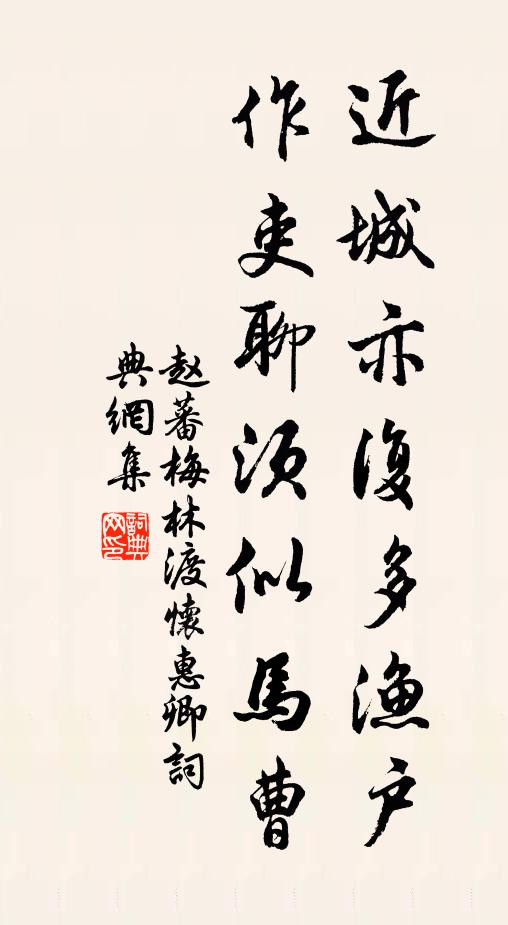 近城亦復多漁户
作吏聊須似馬曹
赵蕃梅林渡懷惠卿詞
典網集
詞典
网印